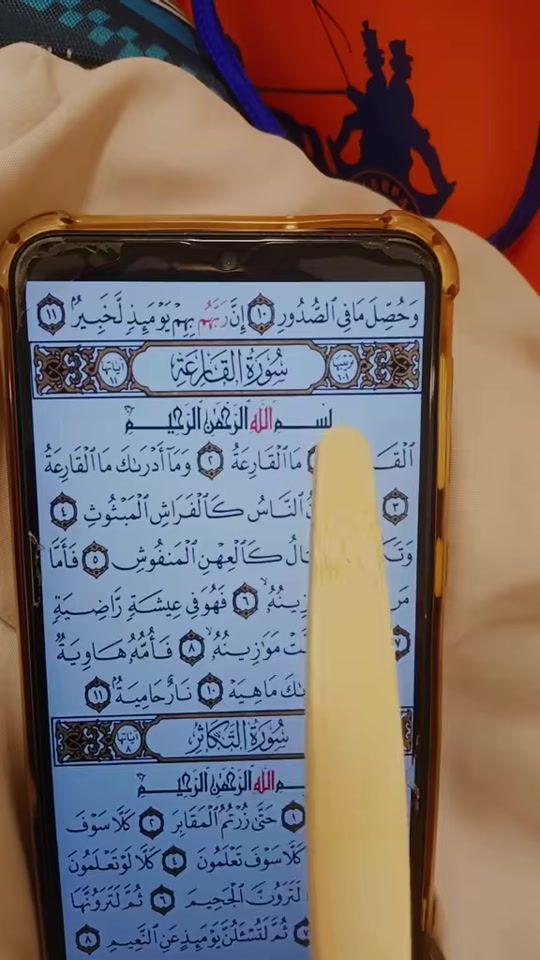 وَحُصِّلَ مَا فِي ٱلصُّدُورِ ١٠ إِنَّ رَبَّهُم بِهِمۡ يَوۡمَئِذٖ لَّخَبِيرُۢ ١١
سُورَةُ القَارِعَةِ
بِسۡمِ ٱللَّهِ ٱلرَّحۡمَٰنِ ٱلرَّحِيمِ
مَا ٱلۡقَارِعَةُ ٢ وَمَآ أَدۡرَىٰكَ مَا ٱلۡقَارِعَةُ
٣ ٱلنَّاسُ كَٱلۡفَرَاشِ ٱلۡمَبۡثُوثِ ٤
كَٱلۡعِهۡنِ ٱلۡمَنفُوشِ ٥ فَأَمَّا
٦ فَهُوَ فِي عِيشَةٖ رَّاضِيَةٖ
٧ مَوَٰزِينُهُۥ ٨ فَأُمُّهُۥ هَاوِيَةٞ
مَا هِيَهۡ ١٠ نَارٌ حَامِيَةُۢ ١١
سُورَةُ التَّكَاثُرِ
ٱللَّهِ ٱلرَّحۡمَٰنِ ٱلرَّحِيمِ
١ حَتَّىٰ زُرۡتُمُ ٱلۡمَقَابِرَ ٢ كَلَّا سَوۡفَ
كَلَّا سَوۡفَ تَعۡلَمُونَ ٤ كَلَّا لَوۡ تَعۡلَمُونَ
لَتَرَوُنَّ ٱلۡجَحِيمَ ٦ ثُمَّ لَتَرَوُنَّهَا
٧ ثُمَّ لَتُسۡـَٔلُنَّ يَوۡمَئِذٍ عَنِ ٱلنَّعِيمِ ٨